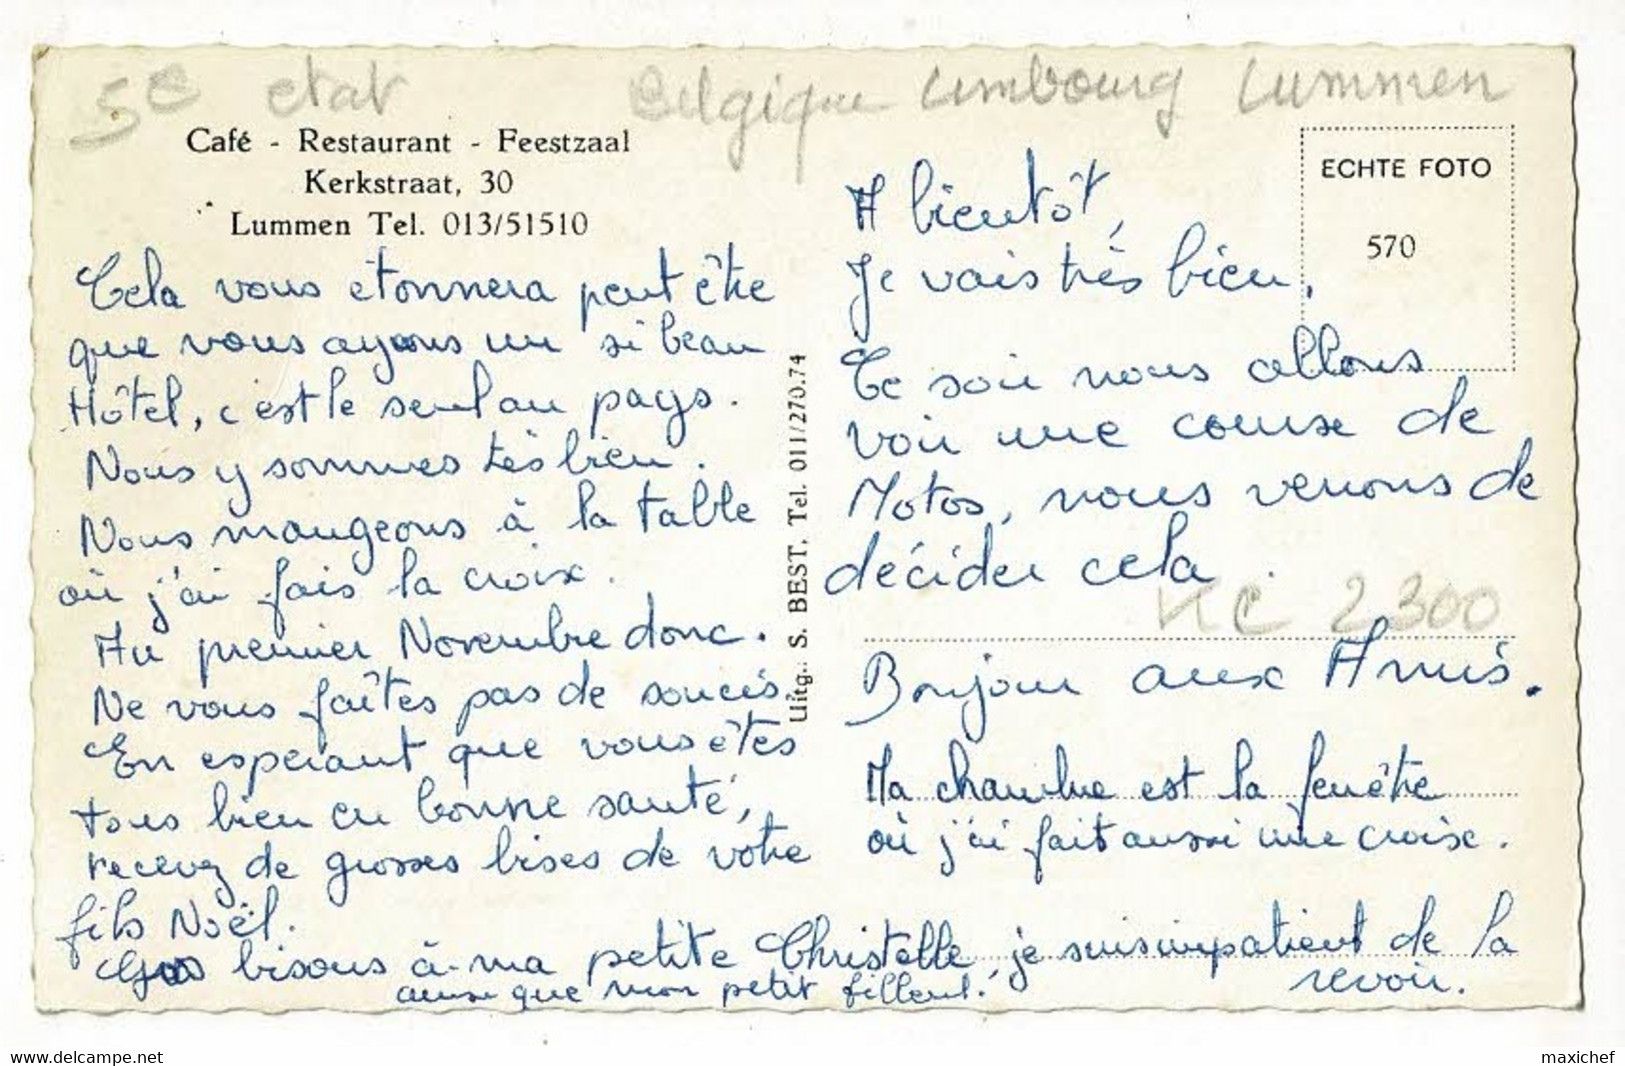 5e etat
Belgique Limbourg Lummen
Café - Restaurant - Feestzaal
Kerkstraat, 30
Lummen Tel. 013/51510
Cela vous étonnera peut être
que vous ayons un si beau
Hôtel, c'est le seul au pays.
Nous y sommes très bien.
Nous mangeons à la table
où j'ai fais la croix.
Au premier Novembre donc.
Ne vous faîtes pas de soucis.
En espérant que vous êtes
tous bien en bonne santé,
recevez de grosses bises de votre
fils Noël.
Gros bisous à ma petite Christelle, je suis impatient de la
revoir.
ainsi que mon petit filleul.
Uitg.: S. BEST. Tel. 011/270.74
ECHTE FOTO
570
A bientôt,
Je vais très bien.
Ce soir nous allons
voir une course de
Motos, nous venons de
décider cela.
2300
Bonjour aux Amis.
Ma chambre est la fenêtre
où j'ai fait aussi une croix.
www.delcampe.net
maxichef